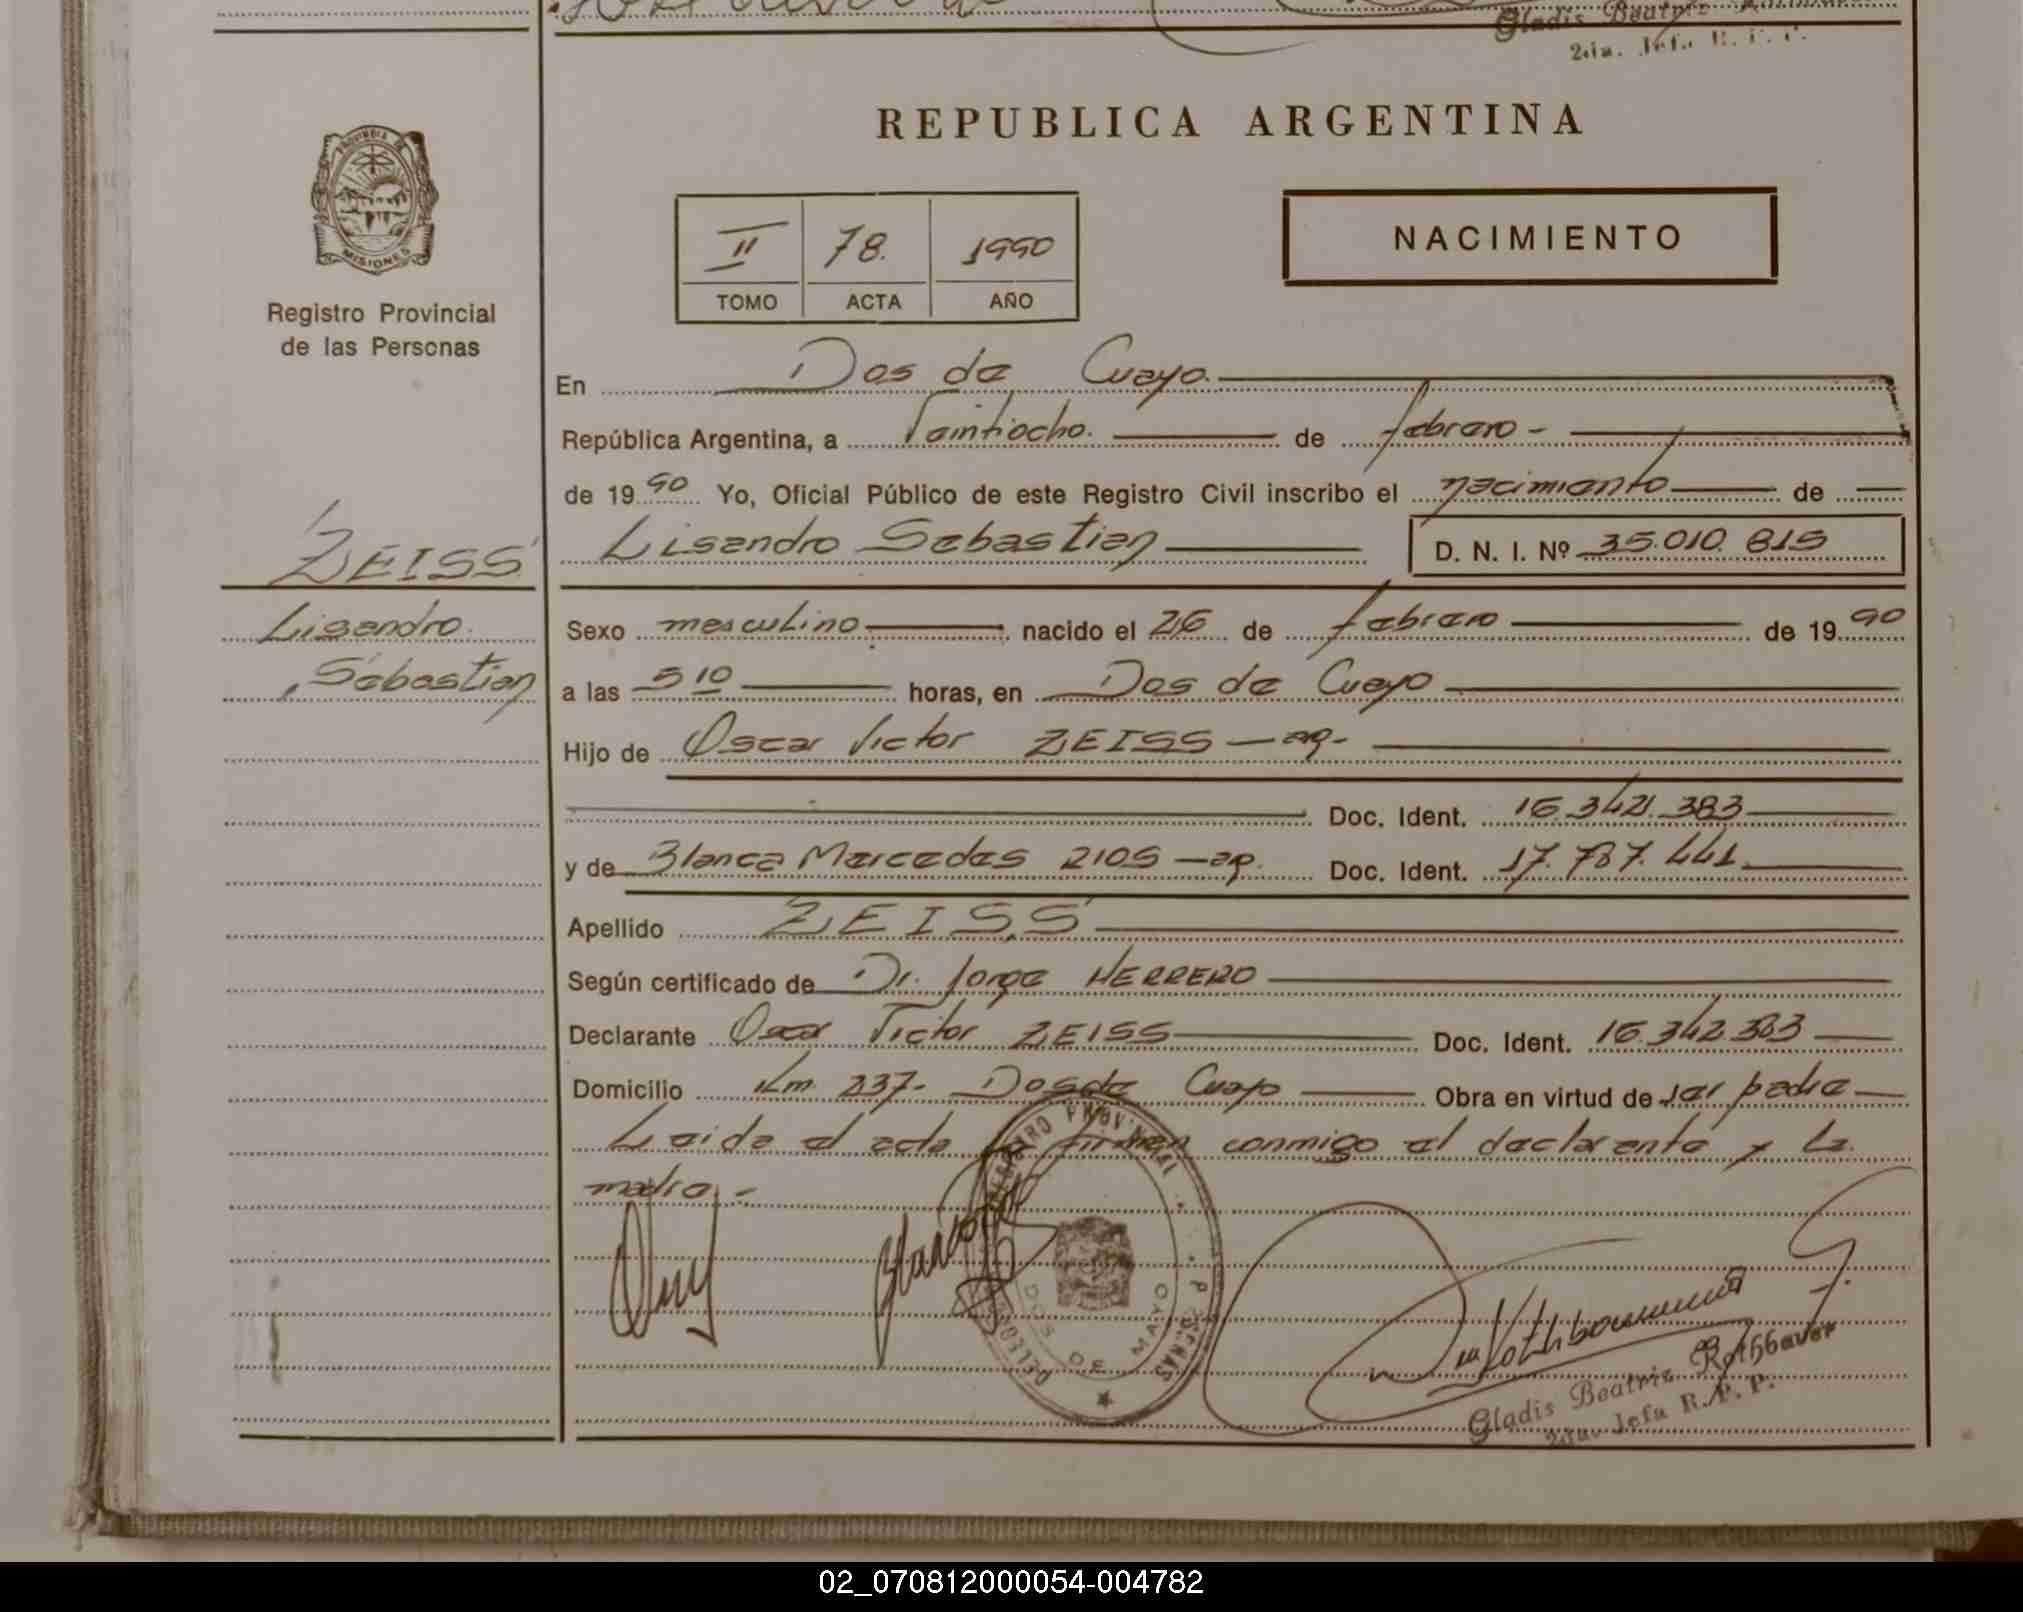 Gladis Beatriz
2da. Jefa R. P. P.
REPUBLICA ARGENTINA
PROVINCIA DE
MISIONES
Registro Provincial
de las Personas
II 78. 1990
TOMO ACTA AÑO
NACIMIENTO
En Dos de Cuayo.
República Argentina, a Veintiocho. de febrero-
de 1990 Yo, Oficial Público de este Registro Civil inscribo el nacimiento de
Lisandro Sebastian D. N. I. Nº 35.010.815
ZEISS
Lisandro
Sebastian
Sexo masculino nacido el 26 de febrero de 1990
a las 5 10 horas, en Dos de Cuayo
Hijo de Oscar Victor ZEISS — ag.-
Doc. Ident. 16.342.383
y de Blanca Mercedes RIOS — ag. Doc. Ident. 17.787.441.
Apellido ZEISS
Según certificado de Dr. Jorge HERRERO
Declarante Oscar Victor ZEISS Doc. Ident. 16.342.383
Domicilio Km. 237.- Dos de Cuayo Obra en virtud de ser padre
Leida el acta la firman conmigo el declarante y la
madre.-
REGISTRO PROVINCIAL
DOS DE MAYO
Gladis Beatriz Rothbauer
2da. Jefa R. P. P.
02_070812000054-004782